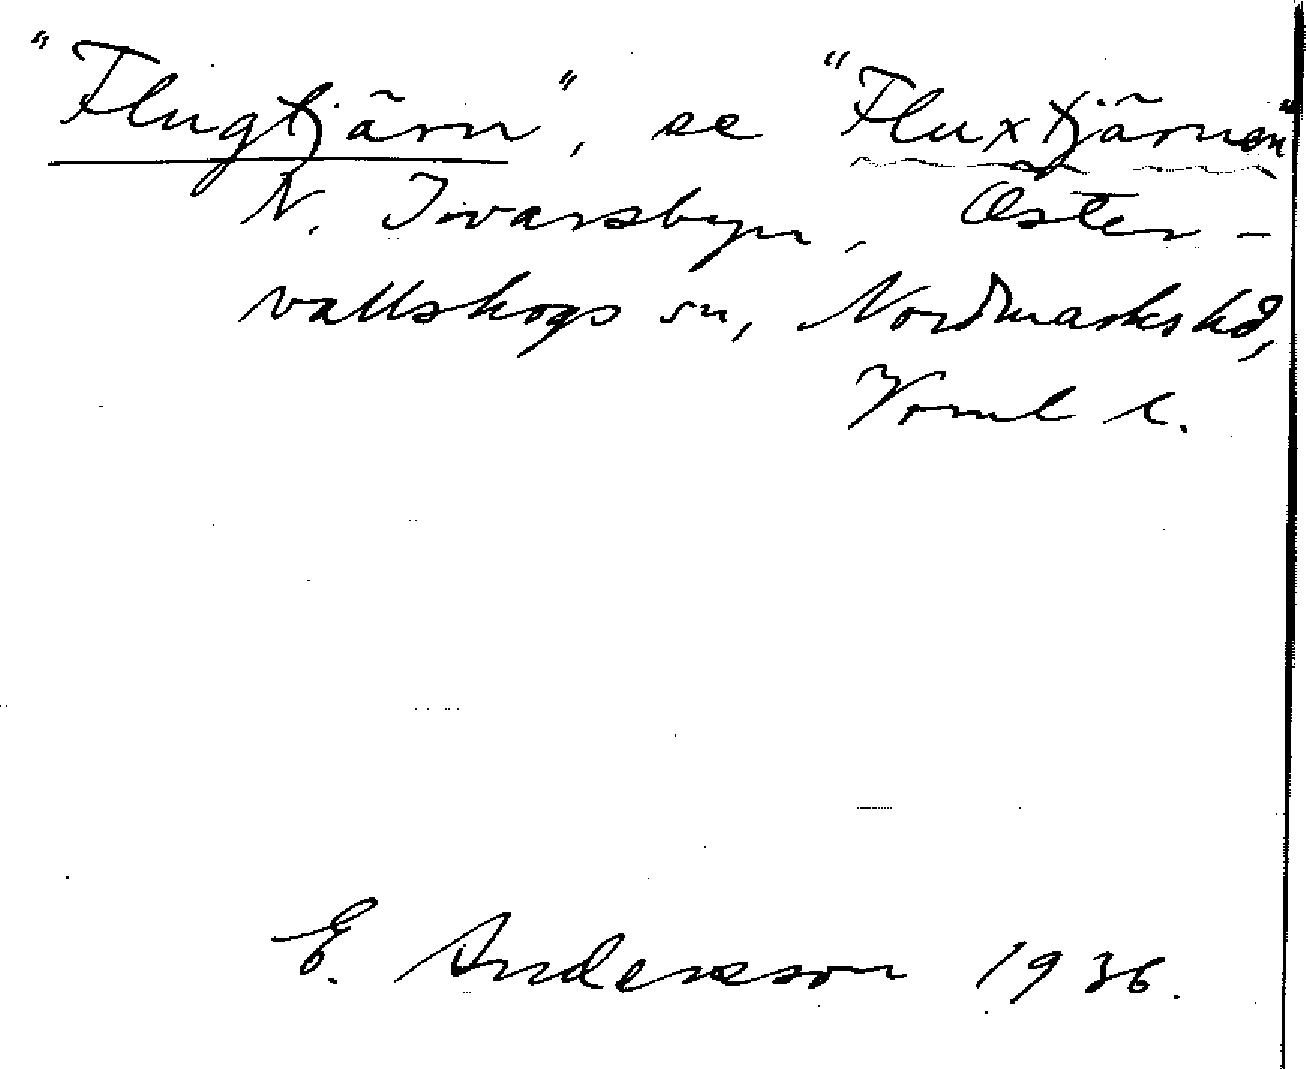 "Flugtjärn", se "Fluxtjärnen"
N. Ivarsbyn, Öster-
vallskogs sn, Nordmarks hd,
Verml l.
E. Andersson 1936.